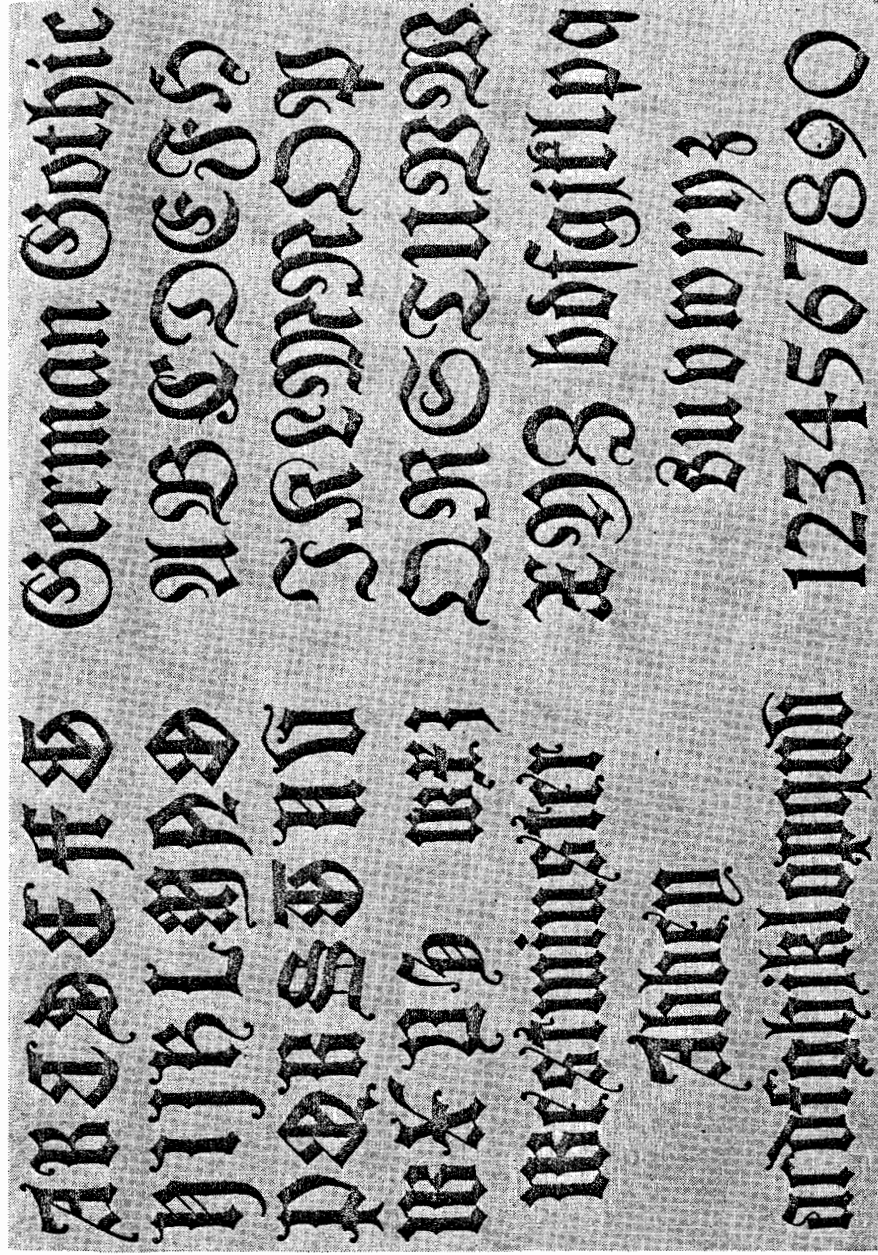 A B C D E F G
H I J K L M N O
P Q R S T U V
W X Y Z wxz
Westminster
Abbey
acdfghijklopquv
German Gothic
A B C D E F H
J K L M N O P
Q R S T U V W
X Y Z bdfgjklpq
suvwxyz
1234567890